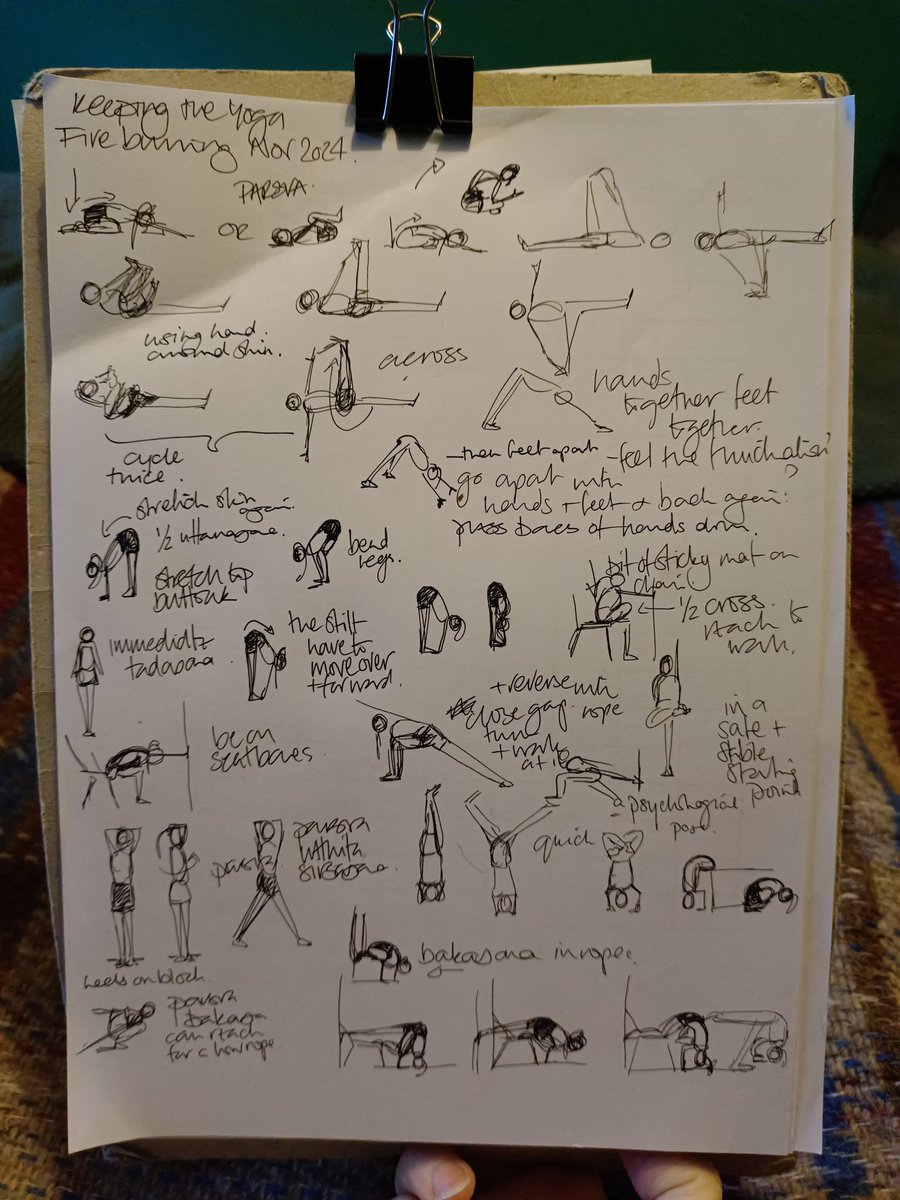 Keeping the Yoga
Fire burning Nov 2024.
PARSVA.
OR
using hand
around shin.
across
hands
together feet
together.
cycle
twice.
- then feet apart
- feel the
go apart with
hands + feet + back again.
press bases of hands down.
stretch skin
again.
1/2 uttanasana.
stretch top
buttock
bend
legs.
bit of sticky mat on
chair
1/2 cross.
reach to
immediately
tadasana
the still
have to
move over
+ forward.
be on
seatbones.
+ reverse with
close gap. rope
turn
+ walk
at it
in a
safe +
stable
starting
point
psychological
pose.
parsva
parsva
utthita
sirsasana.
quick
heels on block.
bakasana in rope.
parsva
bakasa
can reach
for a low rope.